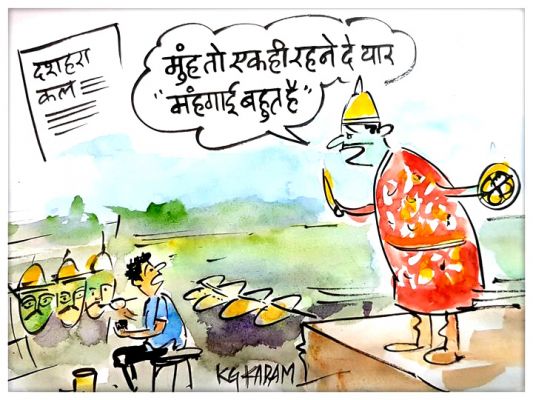 दशहरा
कल
मुंह तो एक ही रहने दे यार
"मंहगाई बहुत है"
KG KADAM